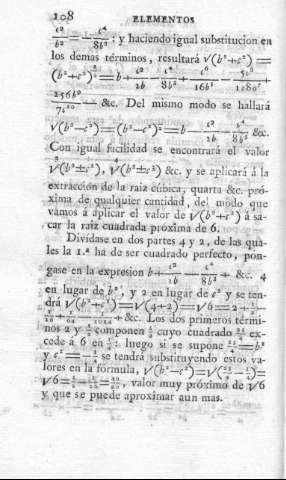 108 ELEMENTOS
c²/b² — c⁴/8b³ : y haciendo igual substitucion en
los demas términos, resultará √(b²+c²) =
(b²+c²)^½ = b + c²/2b — c⁴/8b³ + c⁶/16b⁵ — 5c⁸/128b⁷ +
7c¹⁰/256b⁹ — &c. Del mismo modo se hallará
√(b²—c²)=(b²—c²)^½=b — c²/2b — c⁴/8b³ &c.
Con igual facilidad se encontrará el valor
∛(b²±c²), ∜(b²±c²) &c. y se aplicará á la
extraccion de la raiz cúbica, quarta &c. pró-
xima de qualquier cantidad, del modo que
vamos á aplicar el valor de √(b²+c²) á sa-
car la raiz cuadrada próxima de 6.
Divídase en dos partes 4 y 2, de las qua-
les la 1.ª ha de ser cuadrado perfecto, pon-
gase en la expresion b + c²/2b — c⁴/8b³ + &c. 4
en lugar de b², y 2 en lugar de c² y se ten-
drá √(b²+c²)=√(4+2)=√6=2+½—
+ &c. Los dos primeros térmi-
nos 2 y ½ componen cuyo cuadrado ex-
cede á 6 en ¼: luego si se supone =b²
y c²=—¼ se tendrá substituyendo estos va-
lores en la fórmula, √(b²—c²)=√(25/4—¼)=
√6= , valor muy próximo de √6
y que se puede aproximar aun mas.